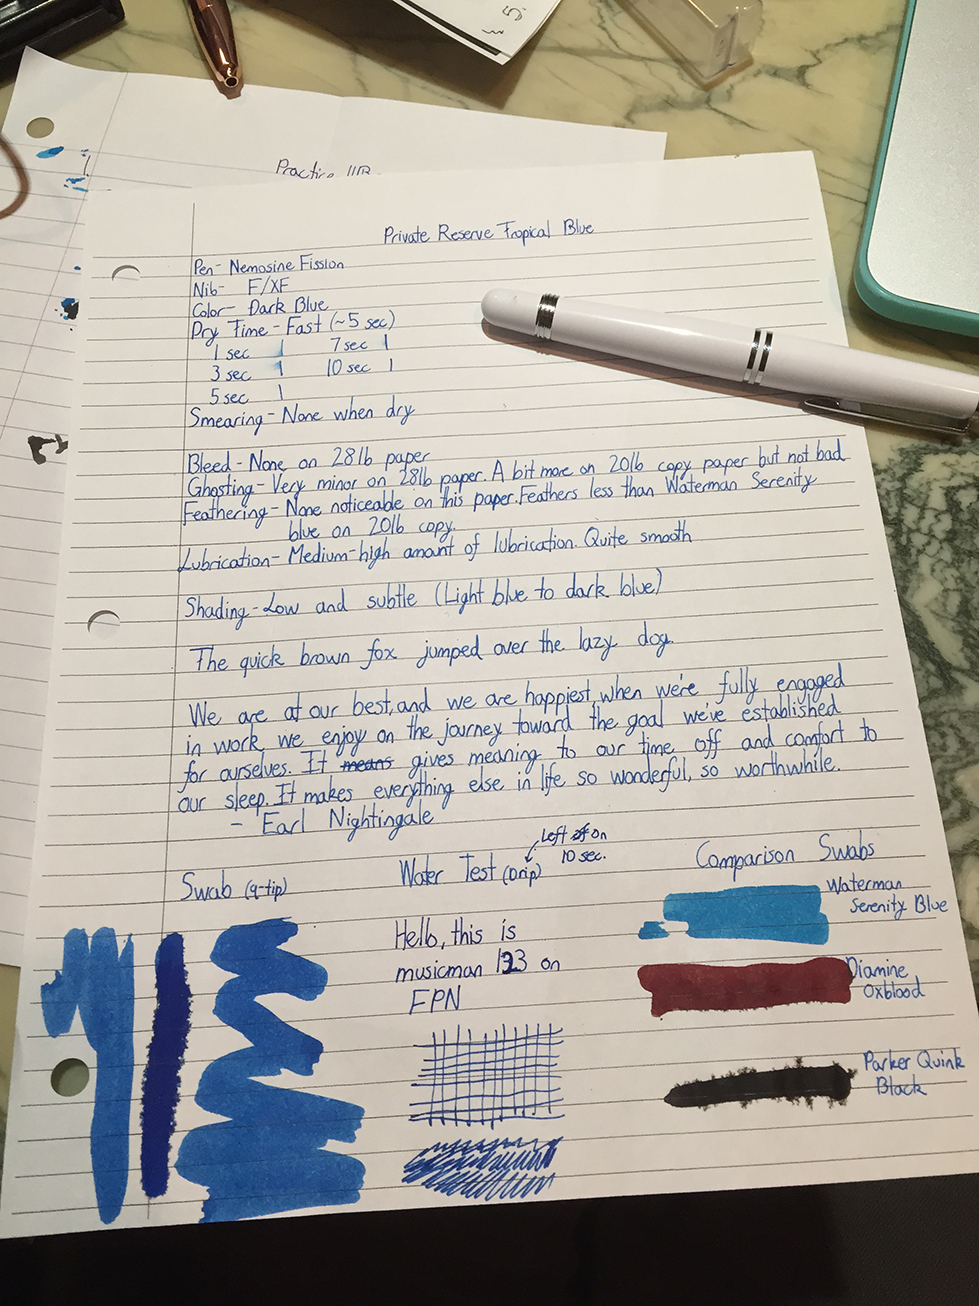 5.
Practice
Private Reserve Tropical Blue
Pen- Nemosine Fission
Nib- F/XF
Color- Dark Blue
Dry Time- Fast (~5 sec)
1 sec | 7 sec |
3 sec | 10 sec |
5 sec |
Smearing- None when dry
Bleed- None on 28lb paper
Ghosting- Very minor on 28lb paper. A bit more on 20lb copy paper but not bad
Feathering- None noticeable on this paper. Feathers less than Waterman Serenity
blue on 20lb copy.
Lubrication- Medium-high amount of lubrication. Quite smooth
Shading- Low and subtle (Light blue to dark blue)
The quick brown fox jumped over the lazy dog.
We are at our best, and we are happiest, when we're fully engaged
in work we enjoy on the journey toward the goal we've established
for ourselves. It means gives meaning to our time off and comfort to
our sleep. It makes everything else in life so wonderful, so worthwhile.
- Earl Nightingale
Swab (q-tip)
Water Test (Drip)
Left on
10 sec.
Hello, this is
musicman 123 on
FPN
Comparison Swabs
Waterman
Serenity Blue
Diamine
Oxblood
Parker Quink
Black